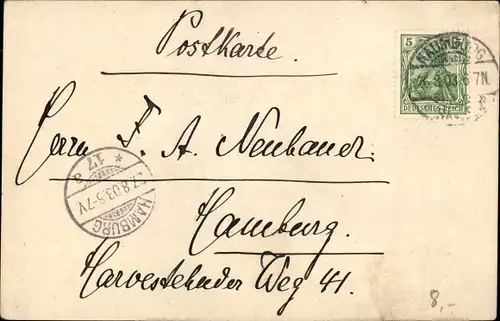 Postkarte.
5
DEUTSCHES REICH
NAUMBURG
Herrn F. A. Neubauer
HAMBURG
17 a
27.8.03.6-7V
Hamburg.
Harvestehuder Weg 41.
8,-